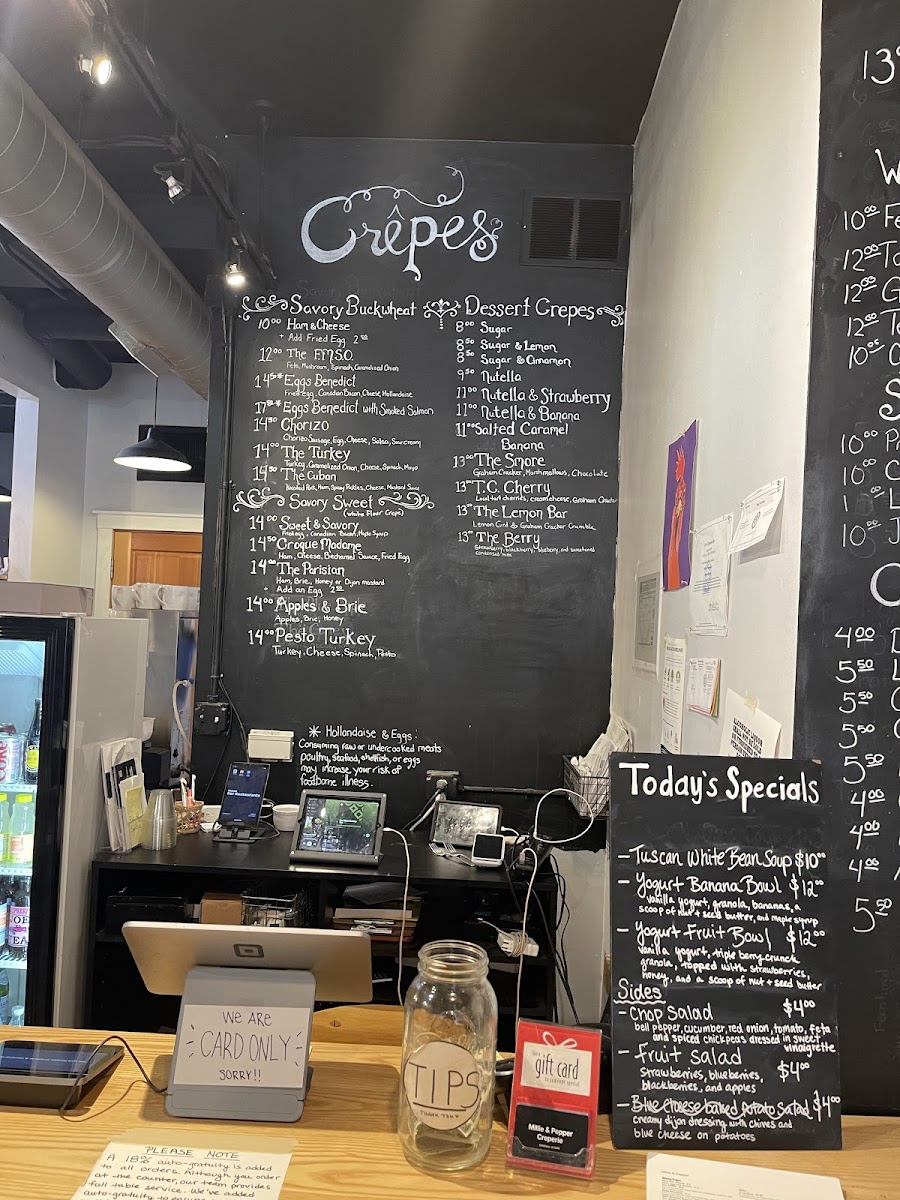 Crêpes
Savory Buckwheat
10⁰⁰ Ham & Cheese
+ Add Fried Egg 2⁵⁰
12⁰⁰ The F.M.S.O.
Feta, Mushroom, Spinach, Caramelized Onion
14⁵⁰* Eggs Benedict
Fried egg, Canadian Bacon, Cheese, Hollandaise
17⁵⁰* Eggs Benedict with Smoked Salmon
14⁵⁰ Chorizo
Chorizo Sausage, Egg, Cheese, Salsa, Sour cream
14⁰⁰ The Turkey
Turkey, Caramelized Onion, Cheese, Spinach, Mayo
14⁵⁰ The Cuban
Roasted Pork, Ham, Spicy Pickles, Cheese, Mustard Sauce
Savory Sweet
(white flour Crepe)
14⁰⁰ Sweet & Savory
Fried egg, Canadian Bacon, Maple Syrup
14⁵⁰ Croque Madame
Ham, Cheese, Bechamel Sauce, Fried Egg
14⁰⁰ The Parisian
Ham, Brie, Honey or Dijon mustard
Add an Egg 2⁵⁰
14⁰⁰ Apples & Brie
Apples, Brie, Honey
14⁰⁰ Pesto Turkey
Turkey, Cheese, Spinach, Pesto
Dessert Crepes
8⁰⁰ Sugar
8⁵⁰ Sugar & Lemon
8⁵⁰ Sugar & Cinnamon
9⁵⁰ Nutella
11⁰⁰ Nutella & Strawberry
11⁰⁰ Nutella & Banana
11⁰⁰ Salted Caramel
Banana
13⁰⁰ The Smore
Graham Cracker, Marshmallows, Chocolate
13⁰⁰ T.C. Cherry
Local tart cherries, cream cheese, Graham Cracker
13⁰⁰ The Lemon Bar
Lemon Curd & Graham Cracker Crumble
13⁰⁰ The Berry
Strawberry, blackberry, blueberry, and sweetened
condensed milk
* Hollandaise & Eggs.
Consuming raw or undercooked meats
poultry, seafood, shellfish, or eggs
may increase your risk of
foodborne illness.
13
W
10⁰⁰ Fe
12⁰⁰ To
12⁰⁰ G
12⁰⁰ Te
10
S
10⁰⁰
10⁰⁰ C
10⁰⁰ J
4⁰⁰
5⁵⁰ L
5⁵⁰
5⁵⁰
5⁵⁰
4⁰⁰
4⁰⁰
4⁰⁰
5⁵⁰
Today's Specials
- Tuscan White Bean Soup $10⁰⁰
- Yogurt Banana Bowl $12⁰⁰
vanilla yogurt, granola, bananas, a
scoop of nut + seed butter, and maple syrup
- Yogurt Fruit Bowl $12⁰⁰
vanilla yogurt, triple berry crunch
granola, topped with strawberries,
honey, and a scoop of nut + seed butter
Sides
- Chop Salad $4⁰⁰
bell pepper, cucumber, red onion, tomato, feta
and spiced chickpeas dressed in sweet
vinaigrette
- Fruit Salad $4⁰⁰
strawberries, blueberries,
blackberries, and apples
- Blue Cheese baked potato Salad $4⁰⁰
creamy dijon dressing with chives and
blue cheese on potatoes
WE ARE
CARD ONLY
SORRY!!
TIPS
THANK YOU
gift card
Millie & Pepper
Creperie
PLEASE NOTE
A 18% auto-gratuity is added
to all orders. Although you order
at the counter, our team provides
full table service. We've added